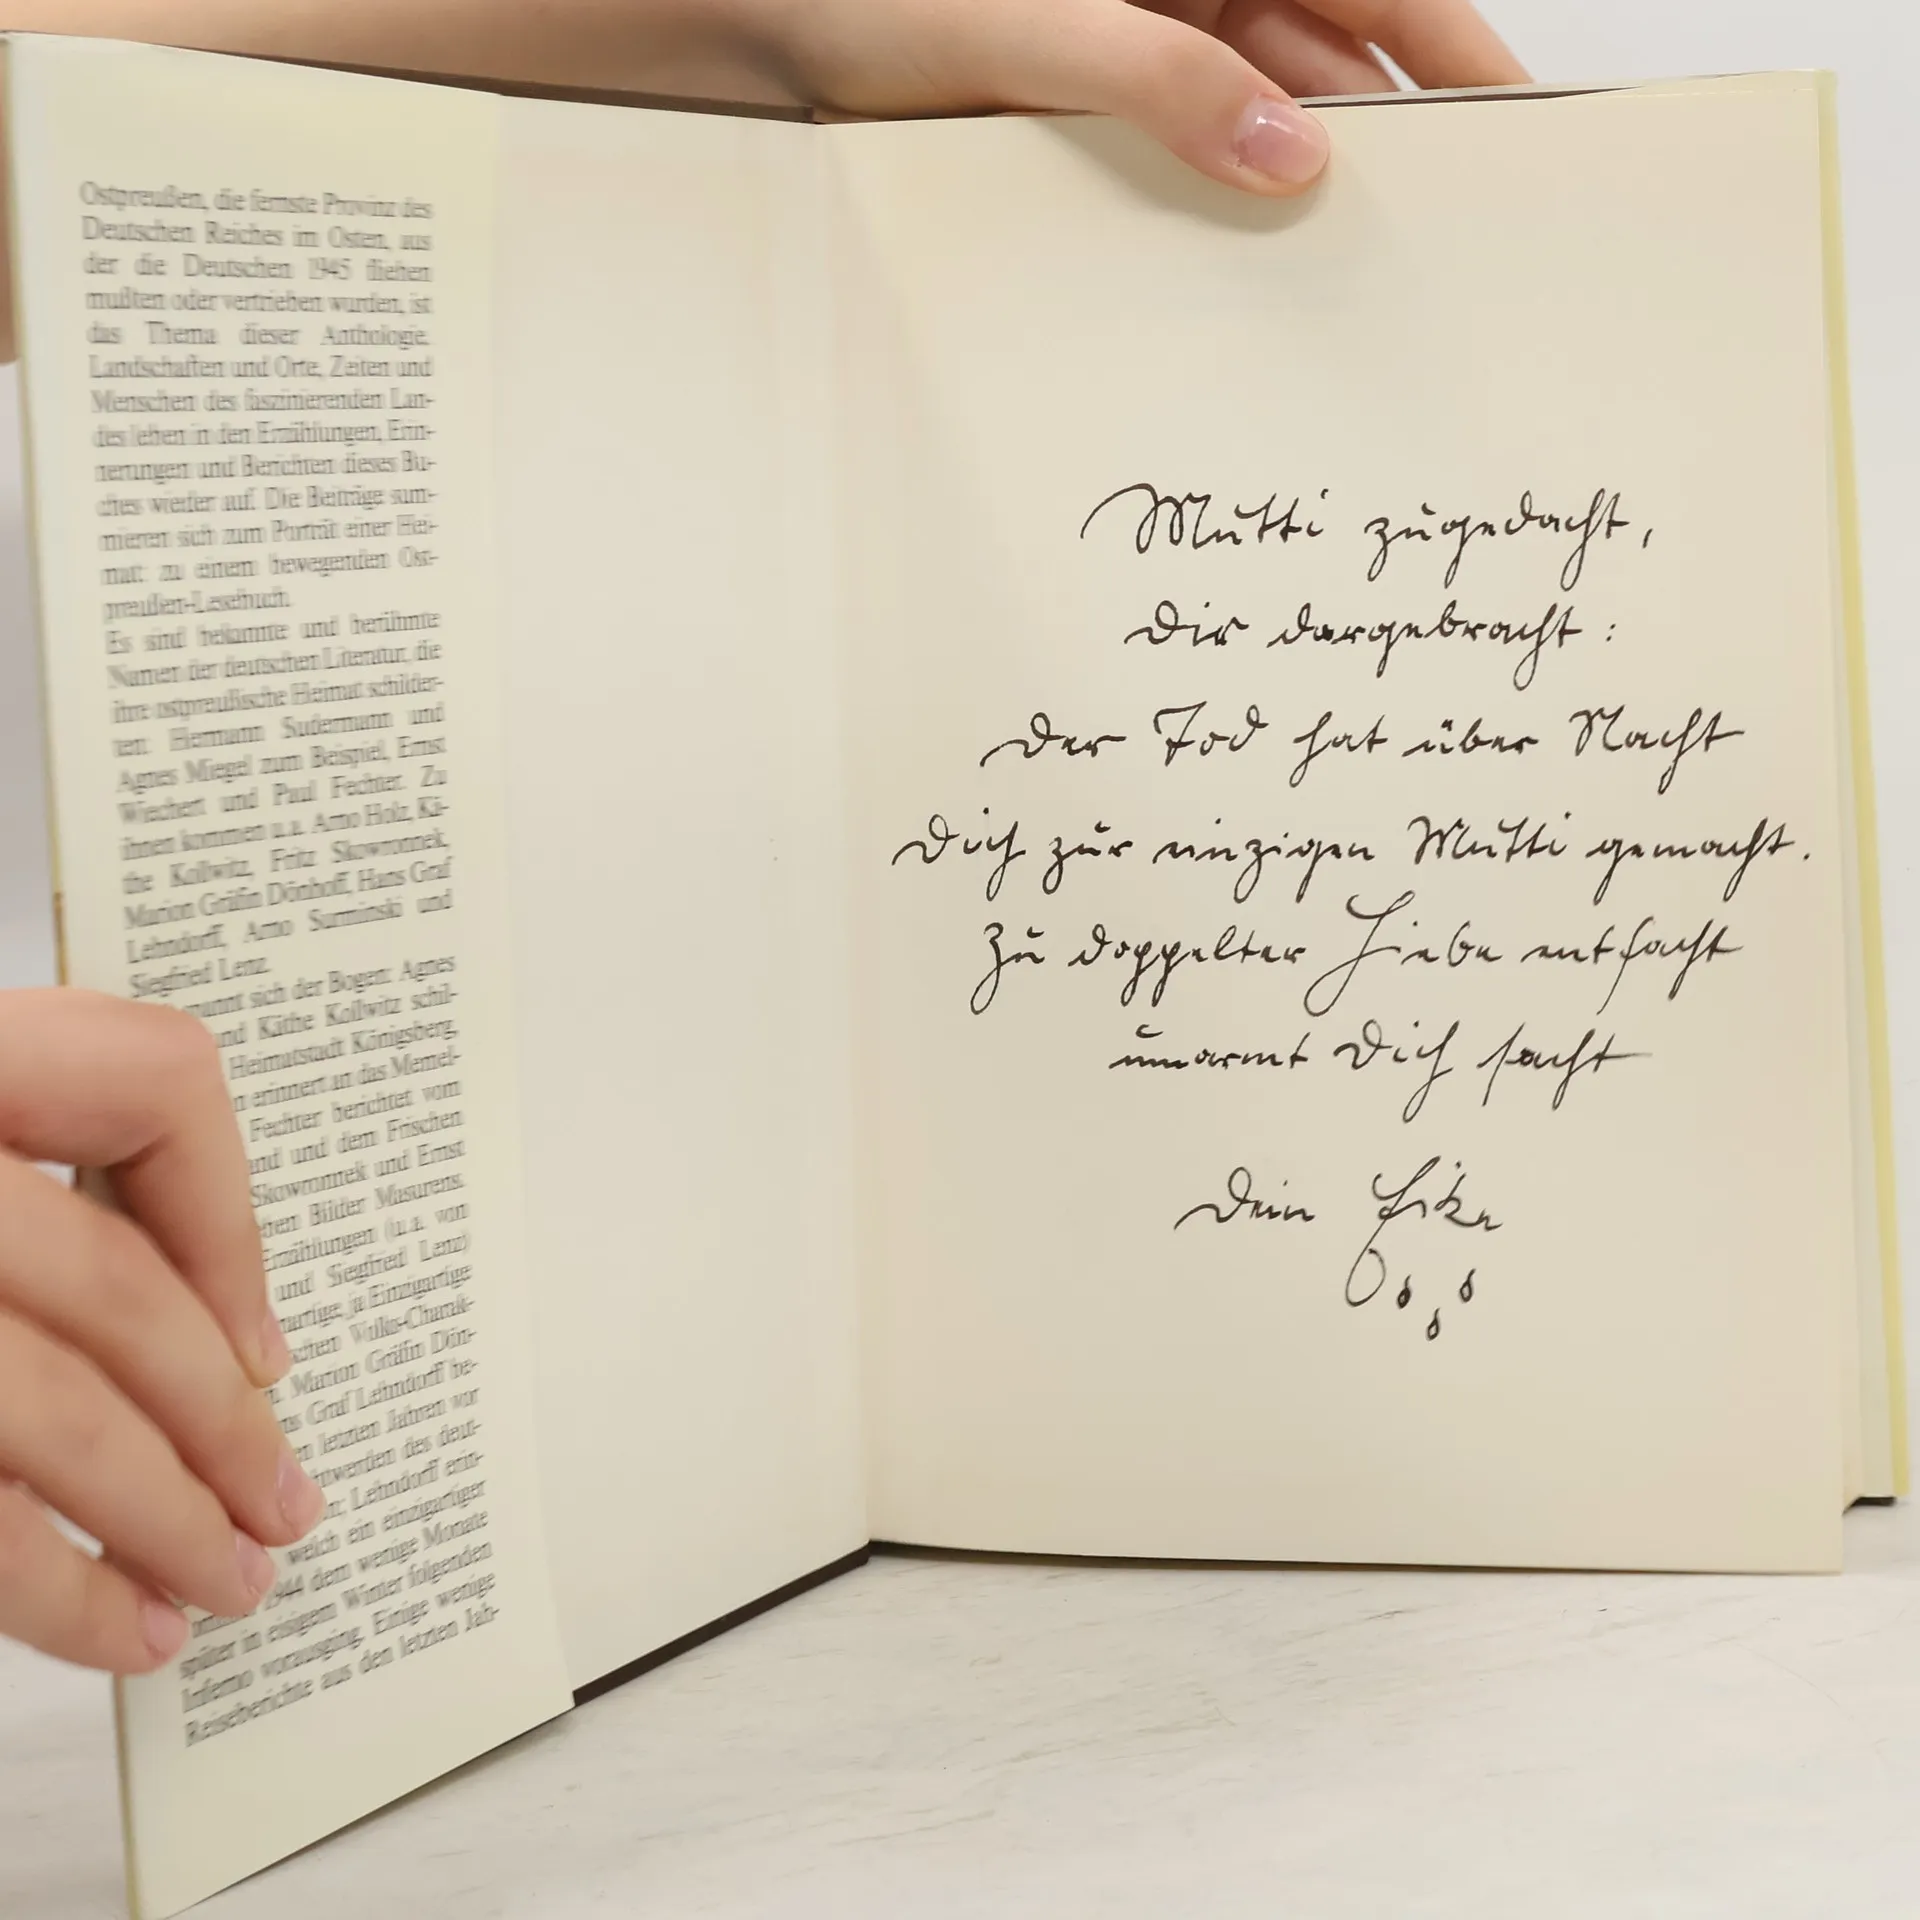 Ostpreußen, die fernste Provinz des
Deutschen Reiches im Osten, aus
der die Deutschen 1945 fliehen
mußten oder vertrieben wurden, ist
das Thema dieser Anthologie.
Landschaften und Orte, Zeiten und
Menschen des faszinierenden Lan-
des leben in den Erzählungen, Erin-
nerungen und Berichten dieses Bu-
ches wieder auf. Die Beiträge sum-
mieren sich zum Porträt einer Hei-
mat: zu einem bewegenden Ost-
preußen-Lesebuch.
Es sind bekannte und berühmte
Namen der deutschen Literatur, die
ihre ostpreußische Heimat schilder-
ten: Hermann Sudermann und
Agnes Miegel zum Beispiel, Ernst
Wiechert und Paul Fechter. Zu
ihnen kommen u.a. Arno Holz, Kä-
the Kollwitz, Fritz Skowronnek,
Marion Gräfin Dönhoff, Hans Graf
Lehndorff, Arno Surminski und
Siegfried Lenz.
spannt sich der Bogen: Agnes
und Käthe Kollwitz schil-
Heimatstadt Königsberg,
erinnert an das Memel-
Fechter berichtet vom
und dem Frischen
Skowronnek und Ernst
Bilder Masurens.
Erzählungen (u.a. von
und Siegfried Lenz)
artige, ja Einzigartige
schen Volks-Charak-
Marion Gräfin Dön-
Graf Lehndorff be-
letzten Jahren vor
des deut-
Lehndorff erin-
welch ein einzigartiger
1944 dem wenige Monate
später in eisigem Winter folgenden
Inferno vorausging. Einige wenige
Reiseberichte aus den letzten Jah-
Mutti zugedacht,
Dir dargebracht:
Der Tod hat über Nacht
Dich zur einzigen Mutti gemacht.
Zu doppelter Liebe entfacht
umarmt Dich sacht
Dein Eike